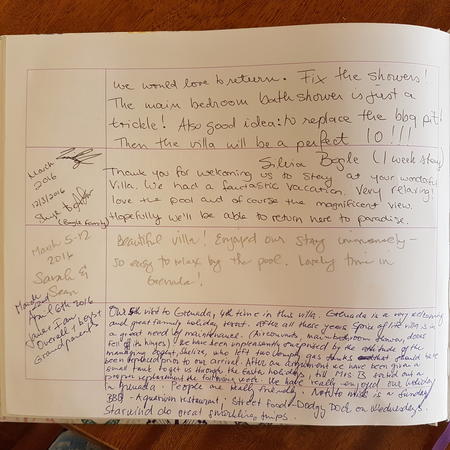 we would love to return. Fix the showers!
The main bedroom bath shower is just a
trickle! Also good idea: to replace the bbq pit!
Then the villa will be a perfect 10!!!
Silvia Bogle (1 week stay)
March
2016
12/3/2016
(Bogle Family)
Thank you for welcoming us to stay at your wonderful
Villa. We had a fantastic vaccation. Very relaxing!
love the pool and of course the magnificent view.
Hopefully we'll be able to return here to paradise.
March 5-12
2016
Sarah &
Sean
Beautiful villa! Enjoyed our stay immensely –
so easy to relax by the pool. Lovely time in
Grenada!
March
April 6th 2016
Grandparents
Our 5th visit to Grenada, 4th time in this villa. Grenada is a very relaxing
and great family holiday resort. After all these years some of the villa is in
a great need of maintenance. (Airconds, main-bedroom shower, doors
fell off its hinges) We have been unpleasantly surprised by the attitude of the
managing agent, who left two empty gas tanks that should have
been replaced prior to our arrival. After an argument we have been given a
small tank to get us through the Easter holidays, till Mrs B. sorted out a
proper replacement the following week. We have really enjoyed our holiday
in Grenada. People are really friendly. Not to miss is a Sunday
BBQ - Aquarium restaurant, Street food - Dodgy Dock on Wednesdays.
Starwind do great snorkling trips.